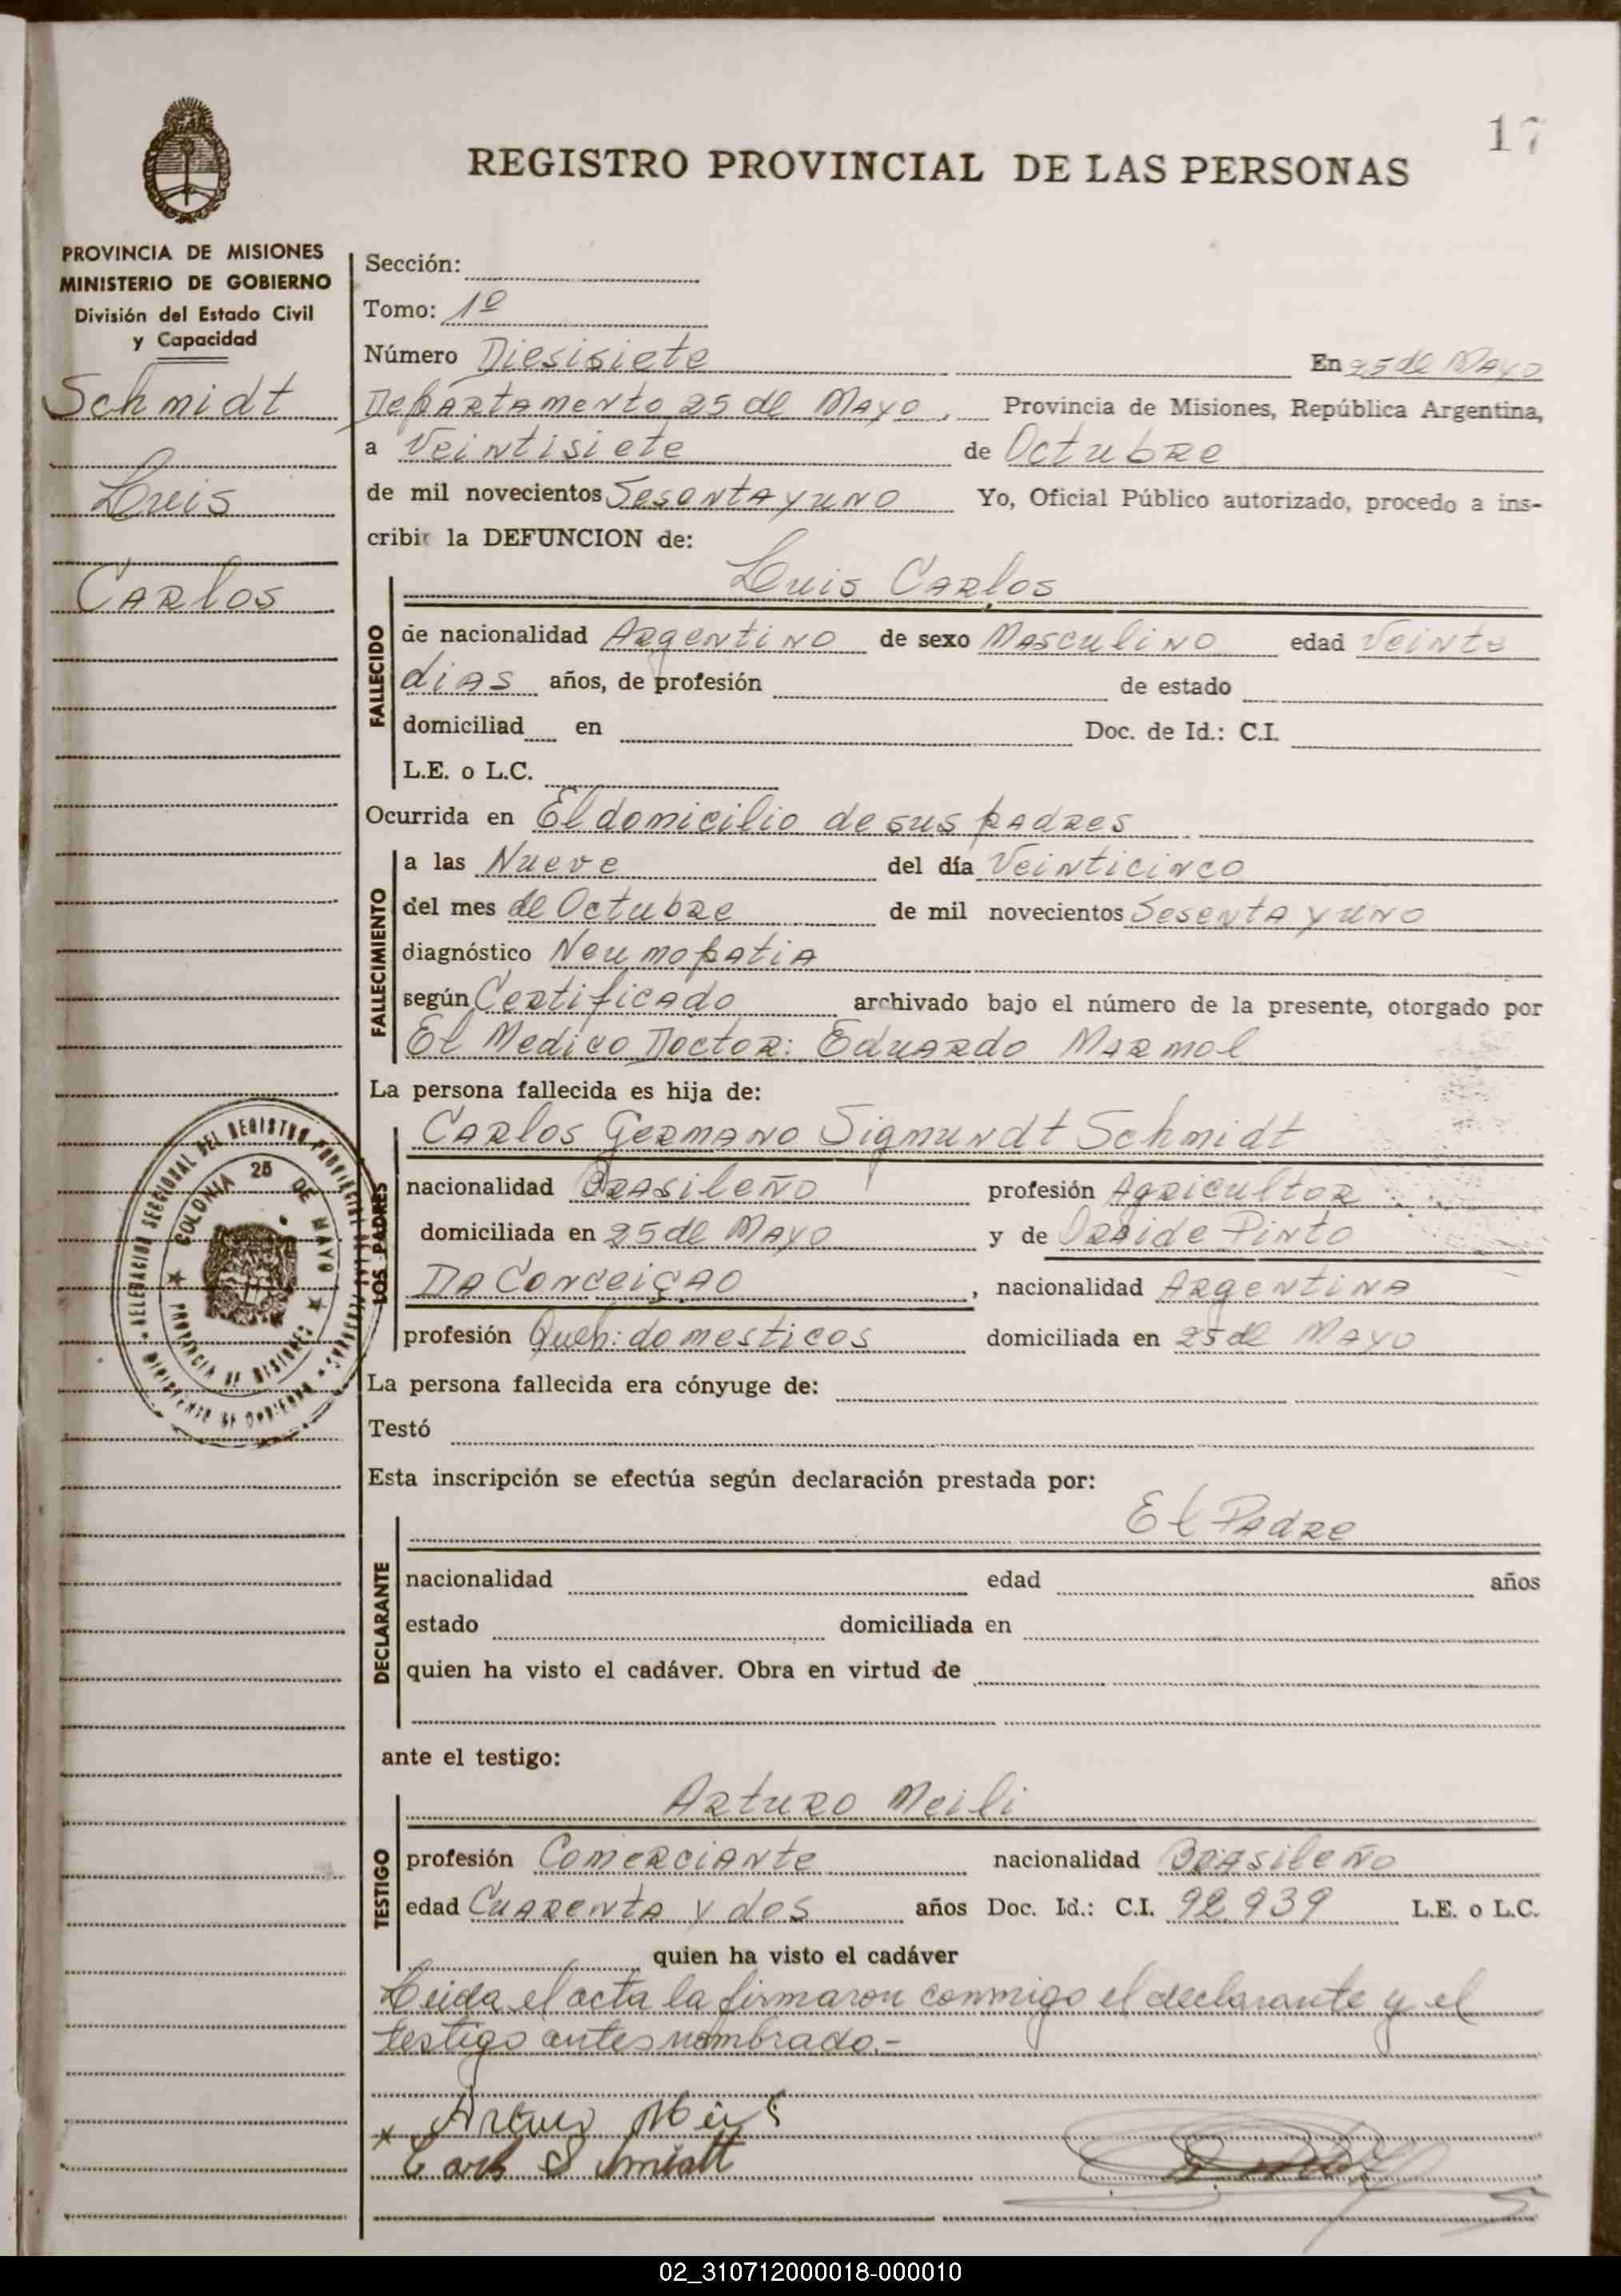 17
REGISTRO PROVINCIAL DE LAS PERSONAS
PROVINCIA DE MISIONES
MINISTERIO DE GOBIERNO
División del Estado Civil
y Capacidad
Schmidt
Luis
Carlos
Sección:
Tomo: 1º
Número Diesisiete En 25 de Mayo
Departamento 25 de Mayo, Provincia de Misiones, República Argentina,
a Veintisiete de Octubre
de mil novecientos Sesenta y uno Yo, Oficial Público autorizado, procedo a ins-
cribir la DEFUNCION de:
Luis Carlos
FALLECIDO
de nacionalidad Argentino de sexo Masculino edad Veinte
dias años, de profesión de estado
domiciliad en Doc. de Id.: C.I.
L.E. o L.C.
Ocurrida en El domicilio de sus padres
FALLECIMIENTO
a las Nueve del día Veinticinco
del mes de Octubre de mil novecientos Sesenta y uno
diagnóstico Neumopatia
según Certificado archivado bajo el número de la presente, otorgado por
El Medico Doctor: Eduardo Marmol
La persona fallecida es hija de:
LOS PADRES
Carlos Germano Sigmundt Schmidt
nacionalidad Brasileño profesión Agricultor
domiciliada en 25 de Mayo y de Oraide Pinto
Da Conceiçao, nacionalidad Argentina
profesión Queh: domesticos domiciliada en 25 de Mayo
DELEGACION SECCIONAL DEL REGISTRO PROVINCIAL DE LAS PERSONAS
MINISTERIO DE GOBIERNO
COLONIA 25 DE MAYO
PROVINCIA DE MISIONES
La persona fallecida era cónyuge de:
Testó
Esta inscripción se efectúa según declaración prestada por:
El Padre
DECLARANTE
nacionalidad edad años
estado domiciliada en
quien ha visto el cadáver. Obra en virtud de
ante el testigo:
Arturo Meili
TESTIGO
profesión Comerciante nacionalidad Brasileño
edad Cuarenta y dos años Doc. Id.: C.I. 92.939 L.E. o L.C.
quien ha visto el cadáver
Leida el acta la firmaron conmigo el declarante y el
testigo antes nombrado.-
x Arturo Meili
02_310712000018-000010